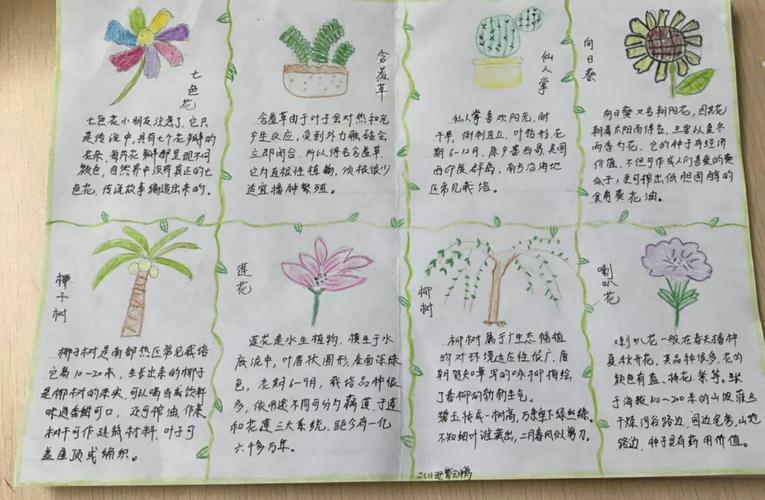 七色花
七色花小朋友注意了，它只
是传说中，具有七个花瓣的
花朵，每片花瓣都呈现不同
颜色，自然界中没有真正的七
色花，传说故事编造出来的。
含羞草
含羞草由于叶子会对热和光
产生反应，受到外力触碰会
立即闭合，所以得名含羞草。
它为直根性植物，须根很少
适宜播种繁殖。
仙人掌
仙人掌喜欢阳光，耐
干旱，花
期6-12月，原产墨西哥，美国
西印度群岛，南方沿海地
区常见栽培。
向日葵
向日葵又名朝阳花，因其花
朝着太阳而得名，
它的种子有经济
价值，不但可作成人们喜爱的葵
瓜子，更可榨出低胆固醇的
食用葵花油。
椰子树
椰子树是南部热区常见栽培
它高10-20米，生长出来的椰子
是椰树的果实，可以喝当成饮料
味道香甜可口，还可榨油，作菜
树干可作建筑材料，叶子可
盖屋顶或编织。
莲花
莲花是水生植物，横生于水
底泥中，叶盾状圆形，表面深绿
色，花期6-9月，栽培品种很
多，依用途不同可分为藕莲、子莲
和花莲三大系统，距今有一亿
六千多万年。
柳树
柳树属于广生态幅植
物对环境适应性很广，唐
朝贺知章写的咏柳描绘
了春柳的勃勃生气。
碧玉妆成一树高，万条垂下绿丝绦。
不知细叶谁裁出，二月春风似剪刀。
喇叭花
喇叭花一般在春天播种
夏秋开花，其品种很多，花的
颜色有蓝、桃花、紫等。生长
于海拔100~200米的山坡灌丛
干燥河谷路边、园边宅旁、山地
路边，种子具有药用价值。